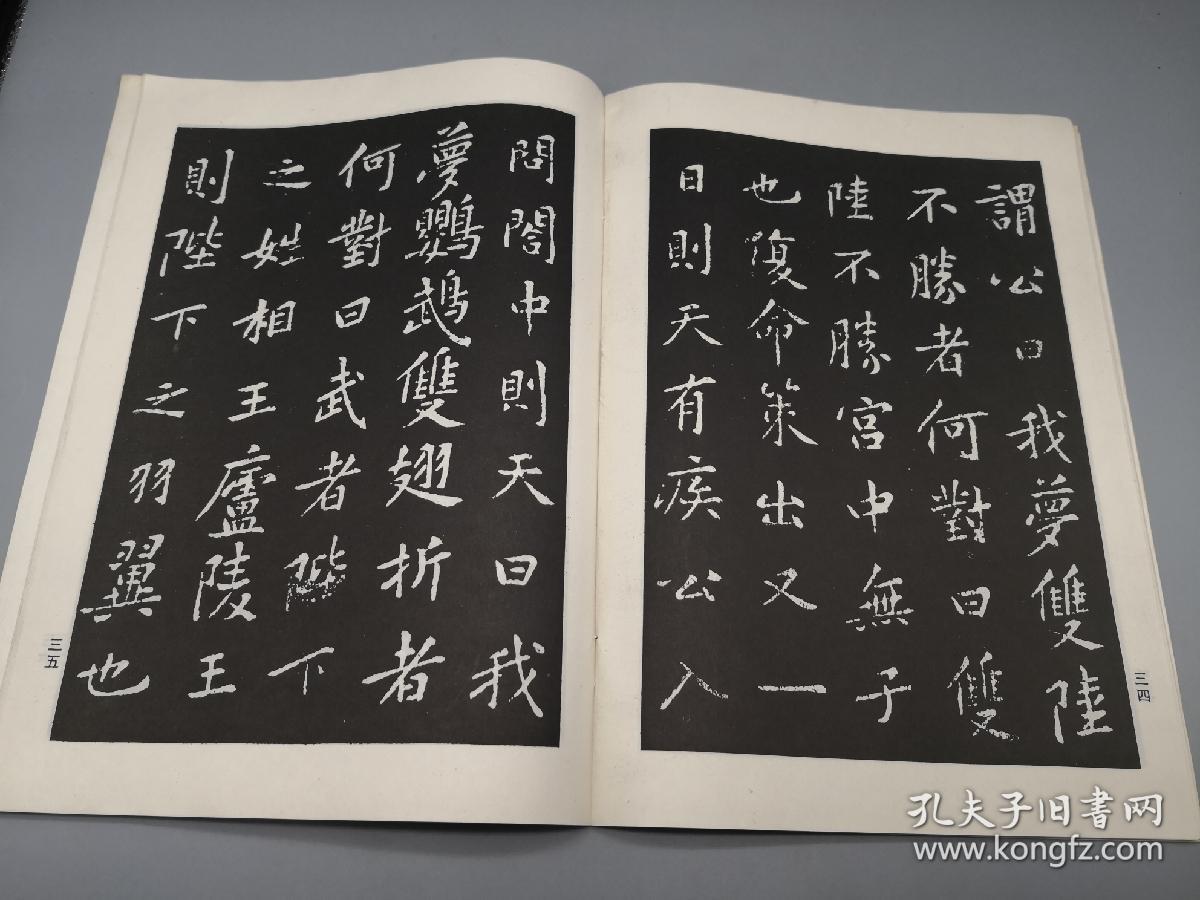 謂公曰我夢雙陸
不勝者何對曰雙
陸不勝宮中無子
也復命策出又一
日則天有疾公入
三四
問閤中則天曰我
夢鸚鵡雙翅折者
何對曰武者陛下
之姓相王廬陵王
則陛下之羽翼也
三五
孔夫子旧书网
www.kongfz.com